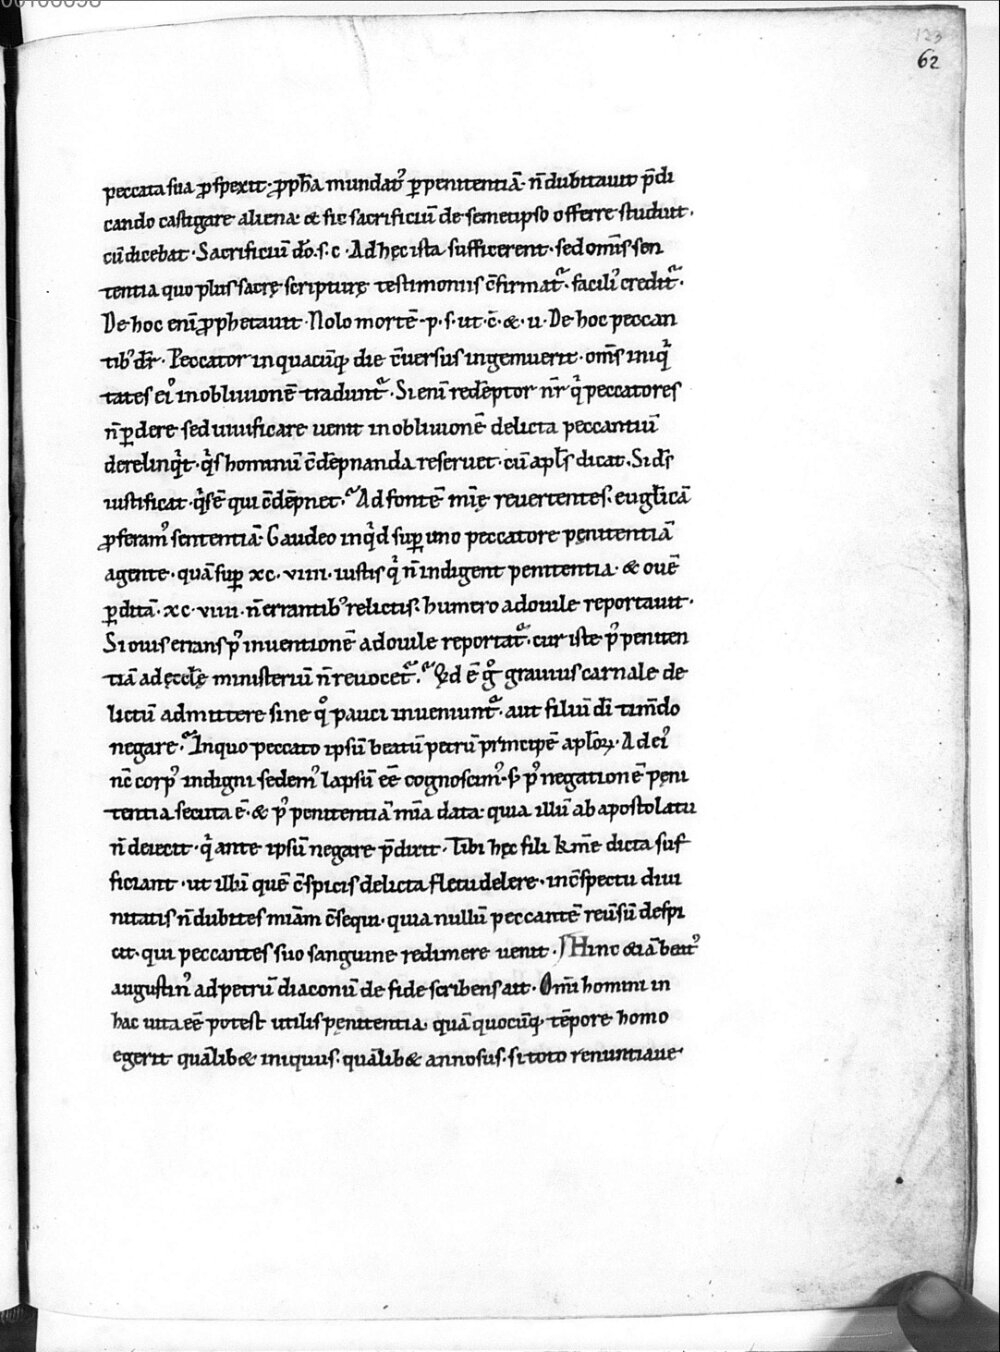 123
62
peccata sua ꝓspexit· ꝓph̄a mundatꝰ ꝑ penitentiā· n̄ dubitauit p̄di
cando castigare aliena· & sic sacrificiū de semetipso offerre studuit·
cū dicebat· Sacrificiū dō·s·c· Ad hęc ista sufficerent· sed om̄s sen
tentia quo plus sacrę scripturę testimoniis c̄firmat᷑· faciliꝰ credit᷑·
De hoc eni ̄ ꝓphetauit· Nolo mortē·p·s·ut·c̄·&·u· De hoc peccan
tibꝰ dr̄· Peccator in quacūq; die c̄uersus ingemuerit· om̄s iniqͥ
tates eiꝰ in obliuionē tradunt᷑· Si eni ̄ redēptor nr̄ qͥ peccatores
n̄ ꝑdere sed uiuificare uenit in obliuionē delicta peccantiū
derelinqͥt· qͥs hominū c̄dēpnanda reseruet· cū apl̄s dicat· Si ds̄
iustificat· qͥs ē qui c̄dēpnet· Ad fontē mi ̄ę reuertentes· eugl̄icā
ꝓferamꝰ sententiā· Gaudeo inqͥd suꝑ uno peccatore pęnitentiā
agente· quā suꝑ xc·viiii· iustis qͥ n̄ indigent penitentia· & ouē
ꝑditā· xc·viiii· n̄ errantibꝰ relictis· humero ad ouile reportauit·
Si ouis errans pꝰ inuentionē ad ouile reportat᷑· cur iste pꝰ peniten
tiā ad ęccl̄ę ministeriū n̄ reuocet᷑· Qd ē gͦ grauius carnale de
lictū admittere sine qͦ pauci inueniunt᷑· aut filiū dī tim̄do
negare· In quo peccato ipsū beatū petrū principē apl̄oꝝ· Ad eiꝰ
nc̄ corpꝰ indigni sedemꝰ lapsū eē cognoscimꝰ· s; pꝰ negationē pęni
tentia secuta ē· & pꝰ penitentiā mīa data· quia illū ab apostolatu
n̄ deiecit· qͥ ante ipsū negare p̄dixit· Tibi hęc fili km̄e dicta suf
ficiant· ut illū quē c̄spicis delicta fletu delere· in c̄spectu diui
nitatis n̄ dubites miām c̄sequi· quia nullū peccantē reūsū despi
cit· qui peccantes suo sanguine redimere uenit· Hinc & iā beatꝰ
augustinꝰ ad petrū diaconū de fide scribens ait· Om̄i homini in
hac uita eē potest utilis pęnitentia· quā quocūq; tēpore homo
egerit quālib& iniquus· quālib& annosus· si toto renuntiaue